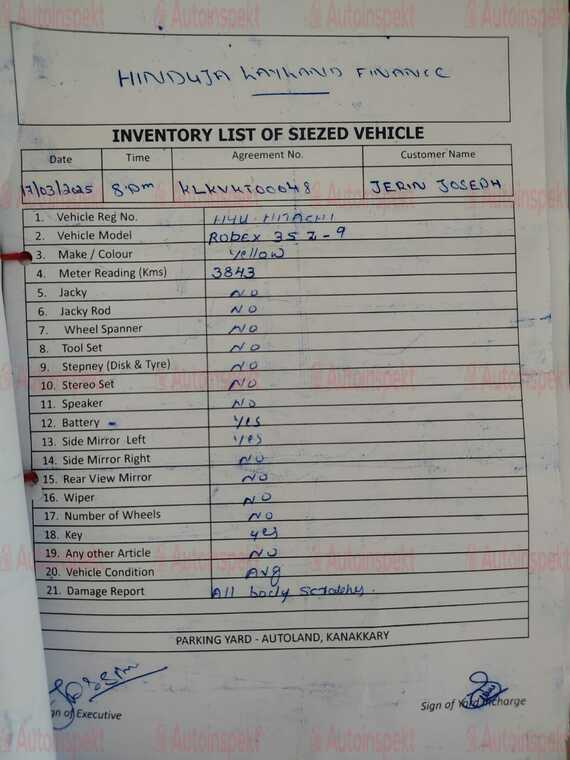 HINDUJA LAYLAND FINANCE
INVENTORY LIST OF SIEZED VEHICLE
Date Time Agreement No. Customer Name
17/03/2025 8 pm KLKVKT00048 JERIN JOSEPH
1. Vehicle Reg No. HITACHI
2. Vehicle Model ROBEX 35 Z-9
3. Make / Colour Yellow
4. Meter Reading (Kms) 3843
5. Jacky NO
6. Jacky Rod NO
7. Wheel Spanner NO
8. Tool Set NO
9. Stepney (Disk & Tyre) NO
10. Stereo Set NO
11. Speaker NO
12. Battery - Yes
13. Side Mirror Left Yes
14. Side Mirror Right NO
15. Rear View Mirror NO
16. Wiper NO
17. Number of Wheels NO
18. Key yes
19. Any other Article NO
20. Vehicle Condition Avg
21. Damage Report All body Scratches.
PARKING YARD - AUTOLAND, KANAKKARY
gn of Executive Sign of Yard Incharge
Autoinspekt